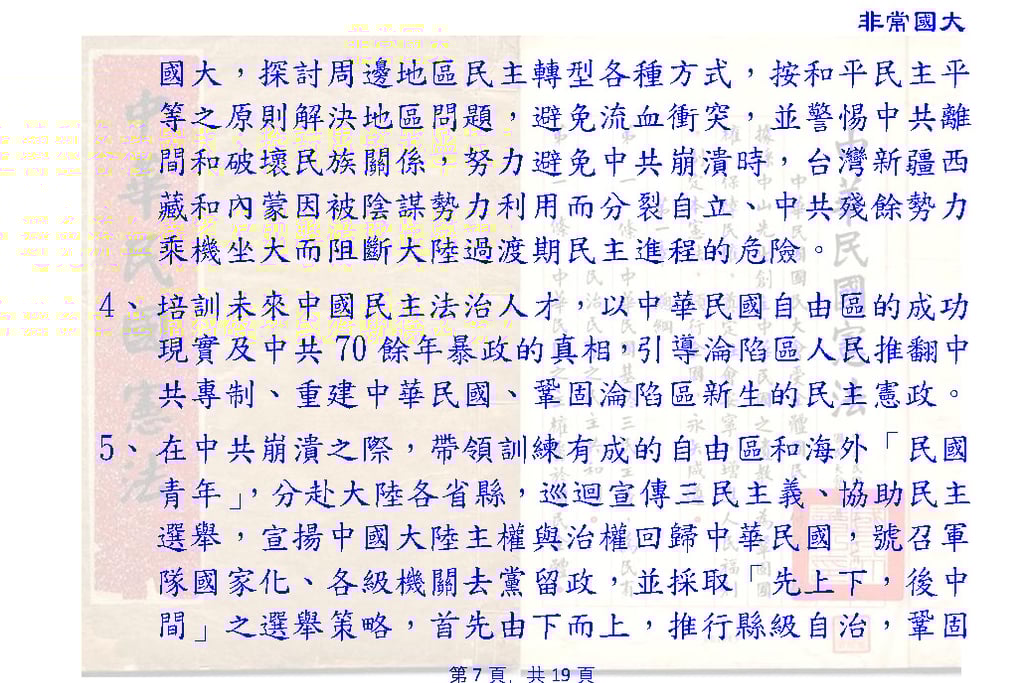 非常國大
國大，探討周邊地區民主轉型各種方式，按和平民主平
等之原則解決地區問題，避免流血衝突，並警惕中共離
間和破壞民族關係，努力避免中共崩潰時，台灣新疆西
藏和內蒙因被陰謀勢力利用而分裂自立、中共殘餘勢力
乘機坐大而阻斷大陸過渡期民主進程的危險。
4、培訓未來中國民主法治人才，以中華民國自由區的成功
現實及中共70餘年暴政的真相，引導淪陷區人民推翻中
共專制、重建中華民國、鞏固淪陷區新生的民主憲政。
5、在中共崩潰之際，帶領訓練有成的自由區和海外「民國
青年」，分赴大陸各省縣，巡迴宣傳三民主義、協助民主
選舉，宣揚中國大陸主權與治權回歸中華民國，號召軍
隊國家化、各級機關去黨留政，並採取「先上下，後中
間」之選舉策略，首先由下而上，推行縣級自治，鞏固
第 7 頁，共 19 頁
中華民國憲法
中華民國憲法